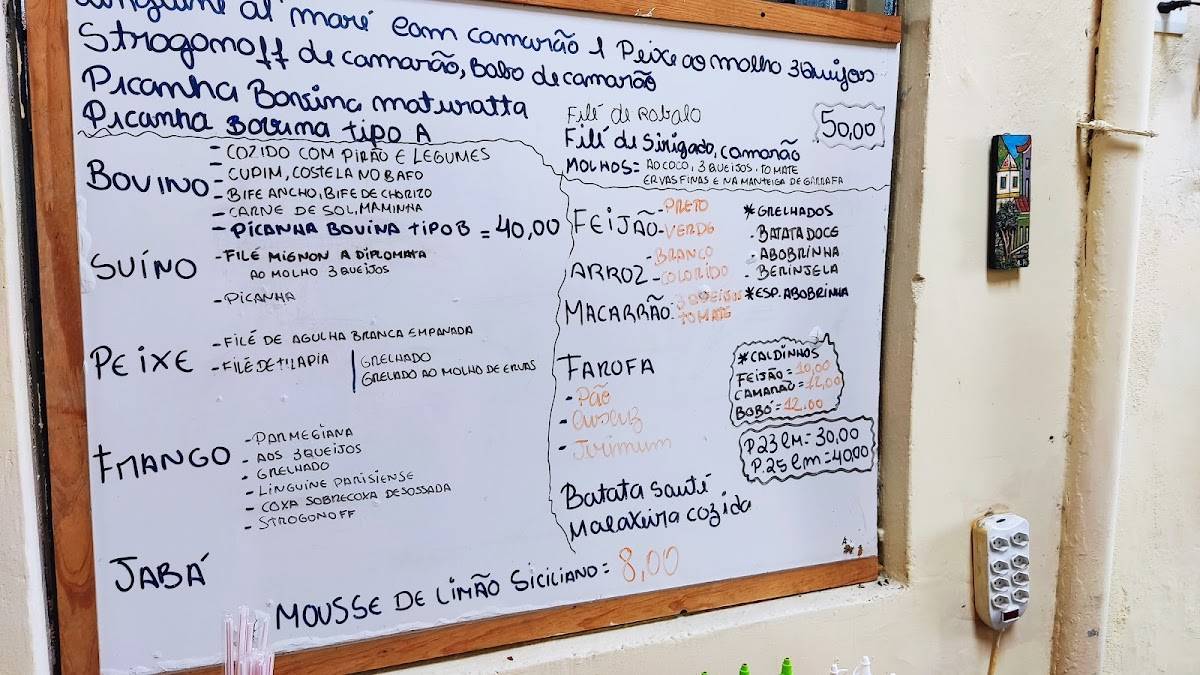 al maré com camarão 1 Peixe ao molho 3 Queijos
Strogonoff de camarão, Bobo de camarão
Picanha Bovina maturatta
Picanha BOVINA TIPO A
Filé de Robalo
Filé de Sirigado, camarão
50,00
MOLHOS= AO COCO, 3 QUEIJOS, TOMATE
ERVAS FINAS E NA MANTEIGA DE GARRAFA
BOVINO
- COZIDO COM PIRÃO E LEGUMES
- CUPIM, COSTELA NO BAFO
- BIFE ANCHO, BIFE DE CHORIZO
- CARNE DE SOL, MAMINHA
- PICANHA BOVINA TIPO B = 40,00
SUÍNO
- FILÉ MIGNON A DIPLOMATA
AO MOLHO 3 QUEIJOS
- PICANHA
PEIXE
- FILÉ DE AGULHA BRANCA EMPANADA
- FILÉ DE TILAPIA
GRELHADO
GRELADO AO MOLHO DE ERVAS
FRANGO
- PARMEGIANA
- AOS 3 QUEIJOS
- GRELHADO
- LINGUINE PARISIENSE
- COXA SOBRECOXA DESOSSADA
- STROGONOFF
JABÁ
FEIJÃO
- PRETO
- VERDE
ARROZ
- BRANCO
- COLORIDO
MACARRÃO:
3 QUEIJOS
TOMATE
* GRELHADOS
- BATATA DOCE
- ABOBRINHA
- BERINJELA
* ESP. ABOBRINHA
FAROFA
- Pão
- Cuscuz
- Jerimum
* CALDINHOS
FEIJÃO = 10,00
CAMARÃO = 12,00
BOBÓ = 12.00
P 23 cm = 30,00
P. 25 cm = 40,00
Batata Sauté
Macaxeira cozida
MOUSSE DE LIMÃO SICILIANO = 8,00